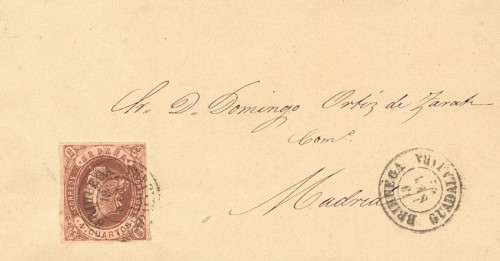 Sr. D. Domingo Ortiz de Zarate
Com.º
Madrid
ESPAÑA
CORREOS
4 CUARTOS
BRIHUEGA
GUADALAJARA